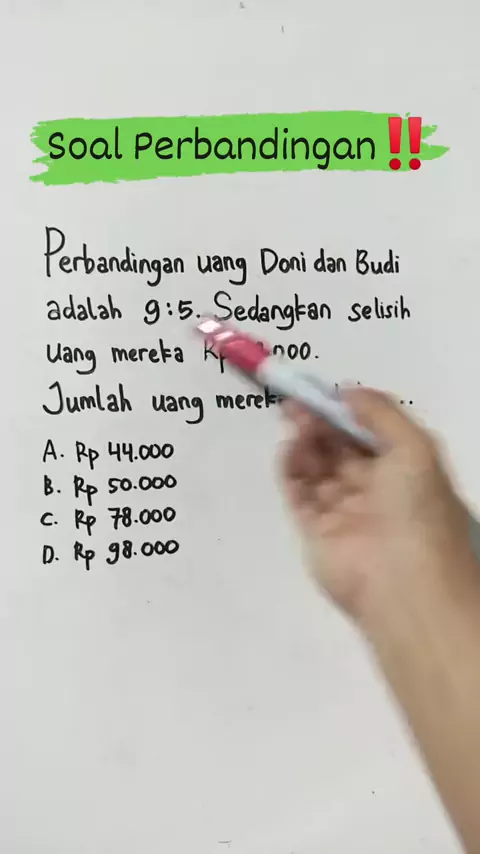 Soal Perbandingan‼️
Perbandingan uang Doni dan Budi
adalah 9:5. Sedangkan selisih
uang mereka
Jumlah uang
A. Rp 44.000
B. Rp 50.000
C. Rp 78.000
D. Rp 98.000